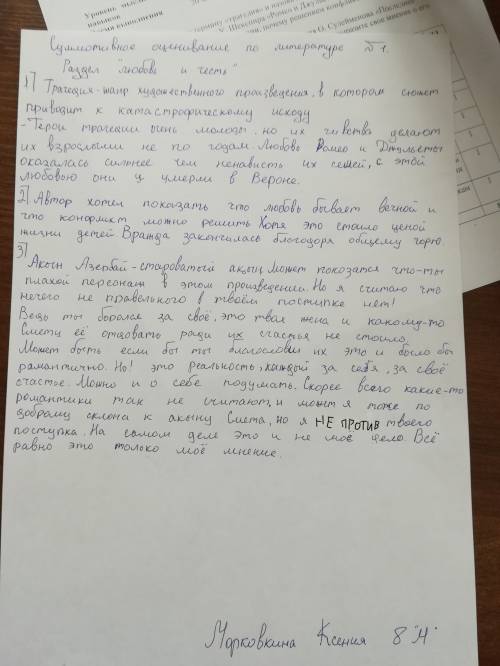 Суммотивное оценивание по литературе №1.
Раздел "любовь и честь"
1) Трагедия-жанр художественного произведения, в котором сюжет
приводит к катастрофическому исходу
-Герои трагедии очень молоды, но их чувства делают
их взрослыми не по годам. Любовь Ромео и Джульеты
оказалась сильнее чем ненависть их семей, с этой
любовью они и умерли в Вероне.
2) Автор хотел показать что любовь бывает вечной и
что конфликт можно решить Хотя это стоило ценой
жизни детей Вражда закончилась благодоря общему горю.
3)
Акын Азербай-староватый акын. Может покозатся что-ты
плахой персонаж в этом произведении. Но я считаю что
нечего не правельного в твоём поступке нет!
Ведь ты боролся за своё, это твая жена и какому-то
Смету её отдовать ради их счастья не стоило.
Может быть если бы ты благословил их это и было бы
романтично. Но! это реальность, каждый за себя, за своё
счастье. Можно и о себе подумать. Скорее всего какие-то
романтики так не считают, и может я тоже по
доброму склона к акыну Смета, но я НЕ ПРОТИВ твоего
поступка. На самом деле это и не моё дело. Всё
равно это только моё мнение.
Морковкина Ксения 8 "Н"
Уровень
навыков
Время выполнения
У. Шекспира «Ромео и
почему решением конфл
О. Сулейменова «Последнее